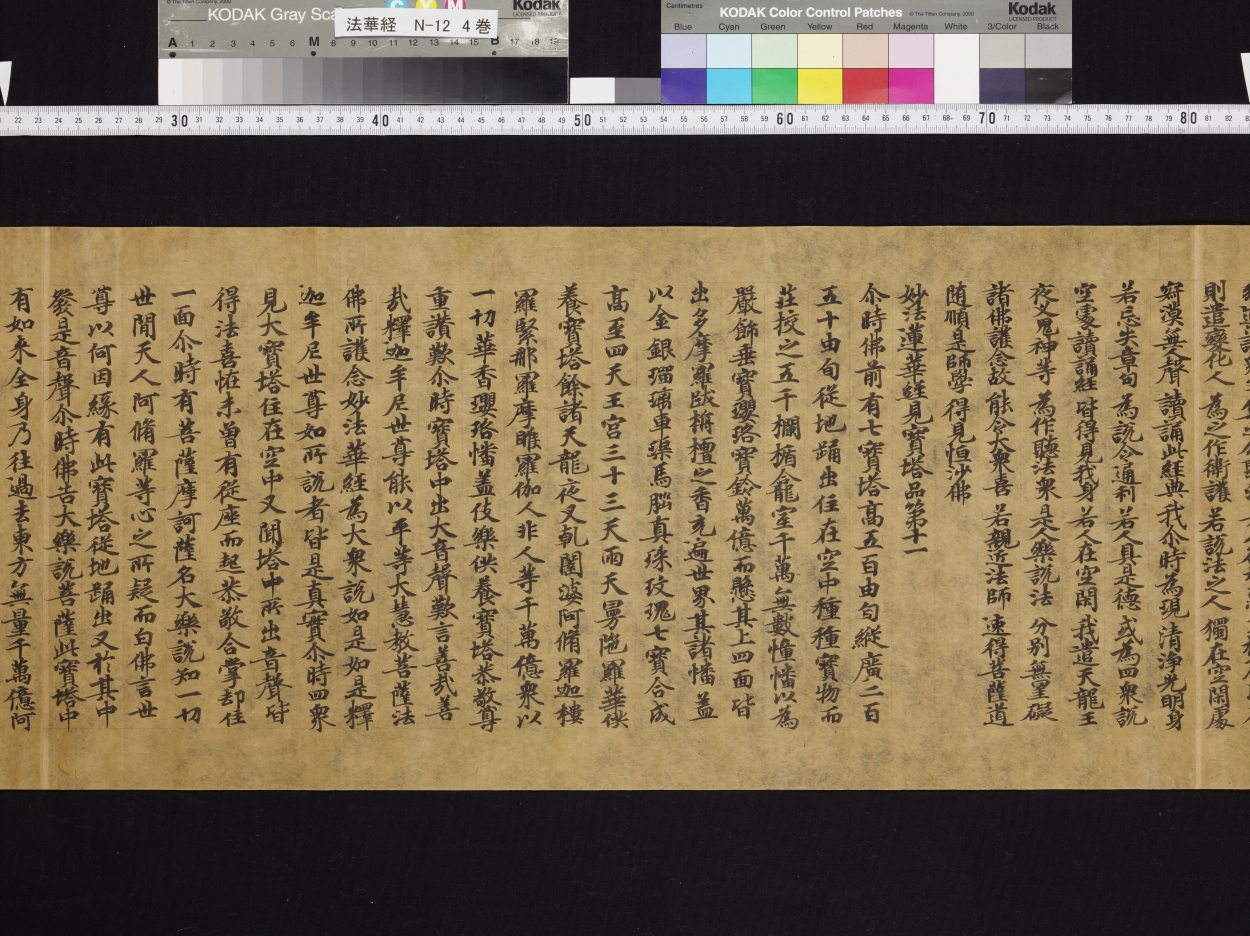 KODAK Gray Sca
法華経 N-12 4巻
Kodak
LICENSED PRODUCT
© The Tiffen Company, 2000
A 1 2 3 4 5 6 M 8 9 10 11 12 13 14 15 B 17 18 19
Centimetres
KODAK Color Control Patches
© The Tiffen Company, 2000
Kodak
LICENSED PRODUCT
Blue Cyan Green Yellow Red Magenta White 3/Color Black
22 23 24 25 26 27 28 29 30 31 32 33 34 35 36 37 38 39 40 41 42 43 44 45 46 47 48 49 50 51 52 53 54 55 56 57 58 59 60 61 62 63 64 65 66 67 68 69 70 71 72 73 74 75 76 77 78 79 80 81 82
則遣變化人 為之作衛護 若說法之人 獨在空閑處
寂漠無人聲 讀誦此經典 我尒時為現 清淨光明身
若忘失章句 為說令通利 若人具是德 或為四衆說
空處讀誦經 皆得見我身 若人在空閑 我遣天龍王
夜叉鬼神等 為作聽法衆 是人樂說法 分別無罣礙
諸佛護念故 能令大衆喜 若親近法師 速得菩薩道
随順是師學 得見恒沙佛
妙法蓮華經見寶塔品第十一
尒時佛前有七寶塔高五百由旬縱廣二百
五十由旬從地踊出住在空中種種寶物而
莊挍之五千欄楯龕室千萬無數幢幡以為
嚴飾垂寶瓔珞寶鈴萬億而懸其上四面皆
出多摩羅跋栴檀之香充遍世界其諸幡盖
以金銀瑠璃車𤦲馬腦真珠玫瑰七寶合成
高至四天王宮三十三天雨天曼陁羅華供
養寶塔餘諸天龍夜叉乹闥婆阿脩羅迦樓
羅緊那羅摩睺羅伽人非人等千萬億衆以
一切華香瓔珞幡盖伎樂供養寶塔恭敬尊
重讃歎尒時寶塔中出大音聲歎言善㢤善
㢤釋迦牟尼世尊能以平等大慧教菩薩法
佛所護念妙法華經為大衆說如是如是釋
迦牟尼世尊如所說者皆是真實尒時四衆
見大寶塔住在空中又聞塔中所出音聲皆
得法喜恠未曾有從座而起恭敬合掌却住
一面尒時有菩薩摩訶薩名大樂說知一切
世間天人阿脩羅等心之所疑而白佛言世
尊以何因緣有此寶塔從地踊出又於其中
發是音聲尒時佛告大樂說菩薩此寶塔中
有如来全身乃往過去東方無量千萬億阿